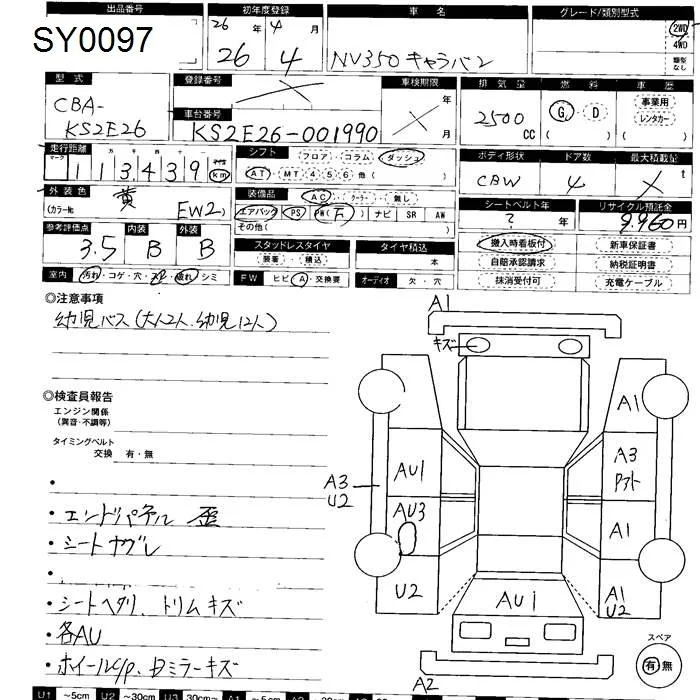 出品番号 初年度登録 車名 グレード/類別型式
SY0097 26年 4月 26 4 NV350キャラバン 2WD 4WD
型式 登録番号 車検期限 排気量 燃料 車歴
CBA-KS2E26 年 月 2500cc G・D 事業用 レンタカー
車台番号 KS2E26-001990
走行距離 シフト フロア・コラム・ダッシュ ボディ形状 ドア数 最大積載量
113439 km AT・MT 4 5 6 他( ) CBW 4 t
外装色 黄 装備品 AC・クーラー・無し シートベルト年 リサイクル預託金
(カラーNo EW2) エアバッグ PS PW(F) ナビ SR AW ?年 9,960円
その他(
参考評価点 内装 外装
3.5 B B
スタッドレスタイヤ タイヤ積込 搬入時看板付 新車保証書
装着・積込 本 自賠承認請求 納税証明書
室内 汚れ・コゲ・穴・ ・シミ FW ヒビ・A・交換要 オーディオ 欠・穴 抹消受付可 充電ケーブル
◎注意事項
幼児バス(大人2人、幼児12人)
◎検査員報告
エンジン関係
(異音・不調等)
タイミングベルト
交換 有・無
・
・エンドパネル 歪
・シート
・
・シートヘタリ、トリムキズ
・各AU
・ホイールc/p、Dミラーキズ
A1
キズ
A1
AU1 A3
A3
U2
AU3 A1
U2 AU1 A1
U2
A2
スペア
有 無
U1 ~5cm U2 ~30cm U3 30cm~ A1